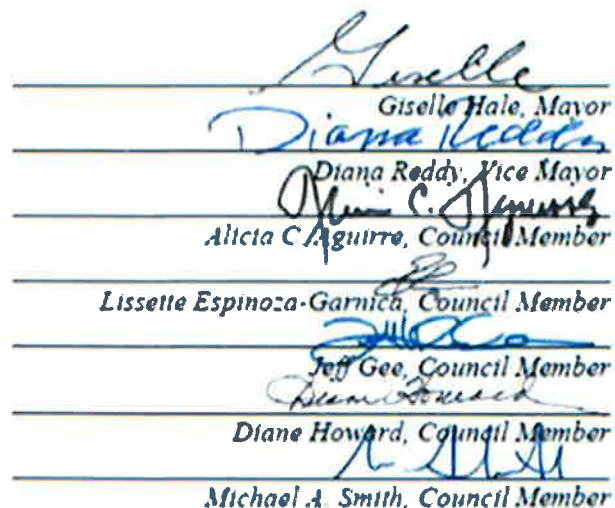 Giselle
Giselle Hale, Mayor
Diana Reddy
Diana Reddy, Vice Mayor
Alicia C. Aguirre
Alicia C Aguirre, Council Member
Lissette Espinoza-Garnica, Council Member
Jeff Gee, Council Member
Diane Howard
Diane Howard, Council Member
Michael A. Smith, Council Member